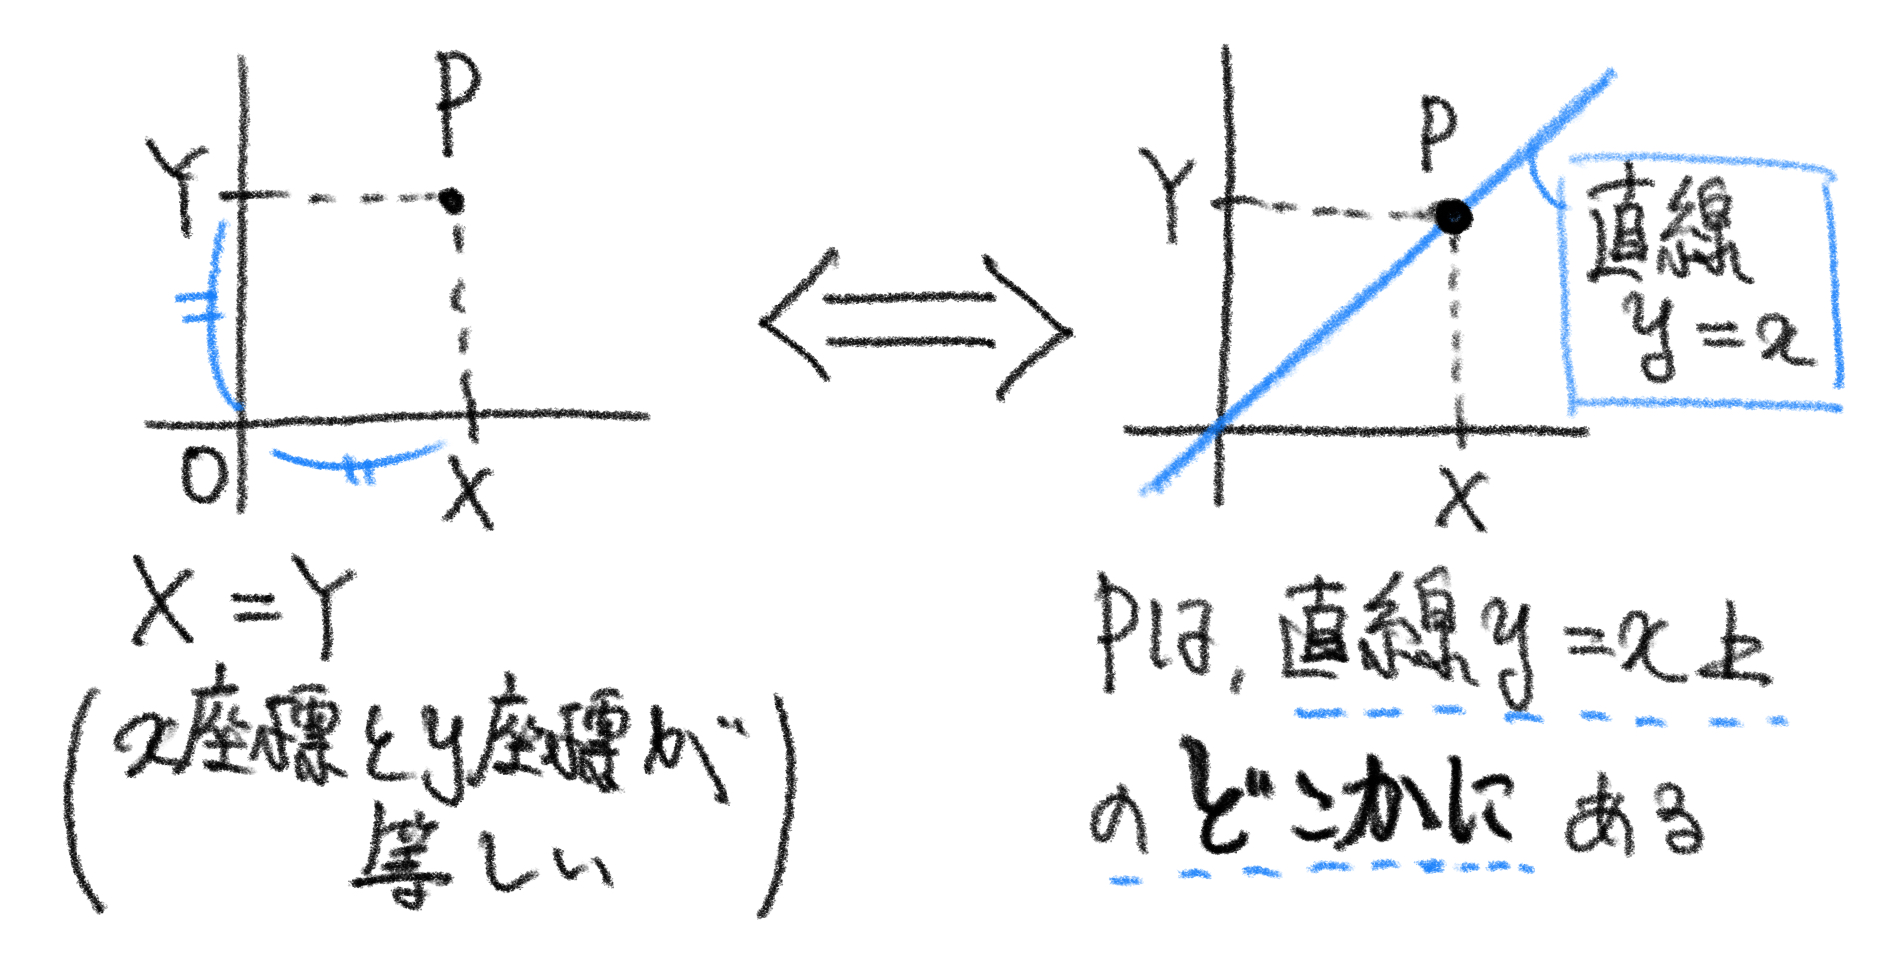 P
Y
O
X
X=Y
(x座標とy座標が
等しい)
⇔
P
Y
直線
y=x
X
Pは,直線y=x上
のどこかにある